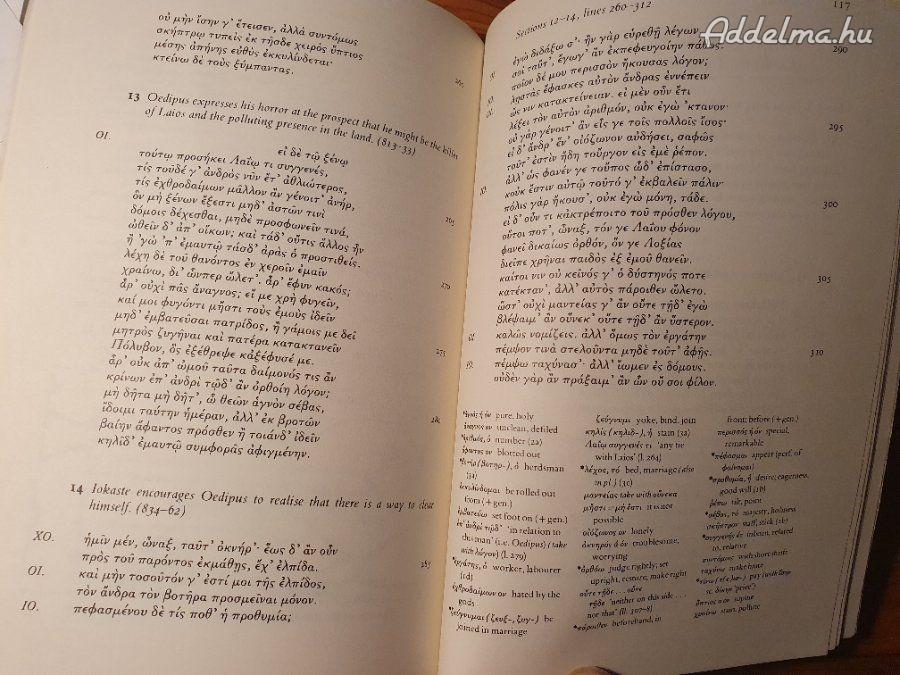 οὐ μὴν ἴσην γ' ἔτεισεν, ἀλλὰ συντόμως
σκήπτρῳ τυπεὶς ἐκ τῆσδε χειρὸς ὕπτιος
μέσης ἀπήνης εὐθὺς ἐκκυλίνδεται·
κτείνω δὲ τοὺς ξύμπαντας.
13 Oedipus expresses his horror at the prospect that he might be the killer
of Laios and the polluting presence in the land. (813–33)
ΟΙ. εἰ δὲ τῷ ξένῳ
τούτῳ προσήκει Λαΐῳ τι συγγενές,
τίς τοῦδέ γ' ἀνδρὸς νῦν ἔτ' ἀθλιώτερος,
τίς ἐχθροδαίμων μᾶλλον ἂν γένοιτ' ἀνήρ,
ὃν μὴ ξένων ἔξεστι μηδ' ἀστῶν τινὶ 265
δόμοις δέχεσθαι, μηδὲ προσφωνεῖν τινά,
ὠθεῖν δ' ἀπ' οἴκων; καὶ τάδ' οὔτις ἄλλος ἦν
ἢ 'γὼ 'π' ἐμαυτῷ τάσδ' ἀρὰς ὁ προστιθείς.
λέχη δὲ τοῦ θανόντος ἐν χεροῖν ἐμαῖν
χραίνω, δι' ὧνπερ ὤλετ'. ἆρ' ἔφυν κακός;
ἆρ' οὐχὶ πᾶς ἄναγνος; εἴ με χρὴ φυγεῖν,
καί μοι φυγόντι μἤστι τοὺς ἐμοὺς ἰδεῖν
μηδ' ἐμβατεῦσαι πατρίδος, ἢ γάμοις με δεῖ
μητρὸς ζυγῆναι καὶ πατέρα κατακτανεῖν
Πόλυβον, ὃς ἐξέθρεψε κἀξέφυσέ με. 275
ἆρ' οὐκ ἀπ' ὠμοῦ ταῦτα δαίμονός τις ἂν
κρίνων ἐπ' ἀνδρὶ τῷδ' ἂν ὀρθοίη λόγον;
μὴ δῆτα μὴ δῆτ', ὦ θεῶν ἁγνὸν σέβας,
ἴδοιμι ταύτην ἡμέραν, ἀλλ' ἐκ βροτῶν
βαίην ἄφαντος πρόσθεν ἢ τοιάνδ' ἰδεῖν
κηλῖδ' ἐμαυτῷ συμφορᾶς ἀφιγμένην.
14 Iokaste encourages Oedipus to realise that there is a way to clear
himself. (834–62)
ΧΟ. ἡμῖν μέν, ὦναξ, ταῦτ' ὀκνήρ'· ἕως δ' ἂν οὖν
πρὸς τοῦ παρόντος ἐκμάθῃς, ἔχ' ἐλπίδα.
ΟΙ. καὶ μὴν τοσοῦτόν γ' ἐστί μοι τῆς ἐλπίδος, 285
τὸν ἄνδρα τὸν βοτῆρα προσμεῖναι μόνον.
ΙΟ. πεφασμένου δὲ τίς ποθ' ἡ προθυμία;
Sections 12–14, lines 260–312 117
Addelma.hu
ἐγὼ διδάξω σ'· ἢν γὰρ εὑρεθῇ λέγων
σοὶ ταῦτ', ἔγωγ' ἂν ἐκπεφευγοίην πάθος. 290
ποῖον δέ μου περισσὸν ἤκουσας λόγον;
λῃστὰς ἔφασκες αὐτὸν ἄνδρας ἐννέπειν
ὥς νιν κατακτείνειαν. εἰ μὲν οὖν ἔτι
λέξει τὸν αὐτὸν ἀριθμόν, οὐκ ἐγὼ 'κτανον·
οὐ γὰρ γένοιτ' ἂν εἷς γε τοῖς πολλοῖς ἴσος· 295
εἰ δ' ἄνδρ' ἕν' οἰόζωνον αὐδήσει, σαφῶς
τοῦτ' ἐστὶν ἤδη τοὖργον εἰς ἐμὲ ῥέπον.
ἀλλ' ὡς φανέν γε τοὖπος ὧδ' ἐπίστασο,
κοὐκ ἔστιν αὐτῷ τοῦτό γ' ἐκβαλεῖν πάλιν·
πόλις γὰρ ἤκουσ', οὐκ ἐγὼ μόνη, τάδε. 300
εἰ δ' οὖν τι κἀκτρέποιτο τοῦ πρόσθεν λόγου,
οὔτοι ποτ', ὦναξ, τόν γε Λαΐου φόνον
φανεῖ δικαίως ὀρθόν, ὅν γε Λοξίας
διεῖπε χρῆναι παιδὸς ἐξ ἐμοῦ θανεῖν.
καίτοι νιν οὐ κεῖνός γ' ὁ δύστηνός ποτε 305
κατέκταν', ἀλλ' αὐτὸς πάροιθεν ὤλετο.
ὥστ' οὐχὶ μαντείας γ' ἂν οὔτε τῇδ' ἐγὼ
βλέψαιμ' ἂν οὕνεκ' οὔτε τῇδ' ἂν ὕστερον.
καλῶς νομίζεις. ἀλλ' ὅμως τὸν ἐργάτην
πέμψον τινὰ στελοῦντα μηδὲ τοῦτ' ἀφῇς. 310
πέμψω ταχύνασ'· ἀλλ' ἴωμεν ἐς δόμους.
οὐδὲν γὰρ ἂν πράξαιμ' ἂν ὧν οὐ σοὶ φίλον.
pure, holy
unclean, defiled
number (2a)
blotted out
herdsman
be rolled out
from (+ gen.)
set foot on (+ gen.)
ἐπ' ἀνδρὶ τῷδ' 'in relation to
this man' (i.e. Oedipus) (take
with λόγον) (l. 279)
ὁ worker, labourer
(1d)
ἐχθροδαίμων ον hated by the
gods
*ζεύγνυμαι (ζευξ-, ζυγ-) be
joined in marriage
ζεύγνυμι yoke, bind, join
κηλίς (κηλιδ-), ἡ stain (3a)
Λαΐῳ συγγενές τι 'any tie
with Laios' (l. 264)
*λέχος, τό bed, marriage (also
in pl.) (3c)
μαντείας take with οὕνεκα
μἤστι = μή ἐστι it is not
possible
οἰόζωνος ον lonely
ὀκνηρός ά όν troublesome,
worrying
*ὀρθόω judge rightly; set
upright, restore, make right
οὔτε τῇδε . . . οὔτε
τῇδε 'neither on this side . . .
nor that' (ll. 307–8)
*πάροιθεν beforehand, in
front; before (+ gen.)
περισσός ή όν special,
remarkable
appear (perf. of
φαίνομαι)
*προθυμία, ἡ desire; eagerness,
good will (1b)
ῥέπω tilt, point
*σέβας, τό majesty, holiness
σκῆπτρον staff, stick (2b)
*συγγενής ές related,
to, relative
συντόμως with short shrift
ταχύνω make haste
pay
ὕπτιος supine
stain, pollute